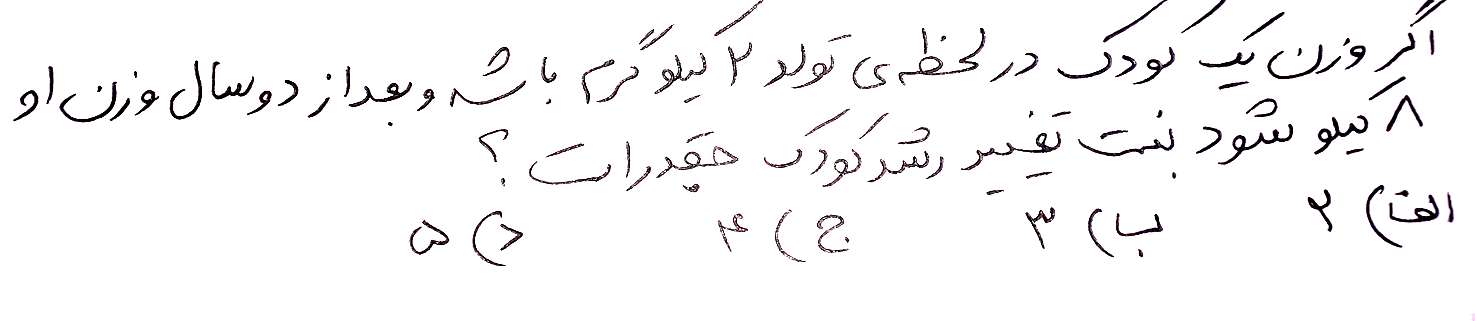 اگر وزن یک کودک در لحظه‌ی تولد ۲ کیلوگرم باشد و بعد از دو سال وزن او
۸ کیلو شود نسبت تغییر رشد کودک چقدر است ؟
الف) ۲ ب) ۳ ج) ۴ د) ۵